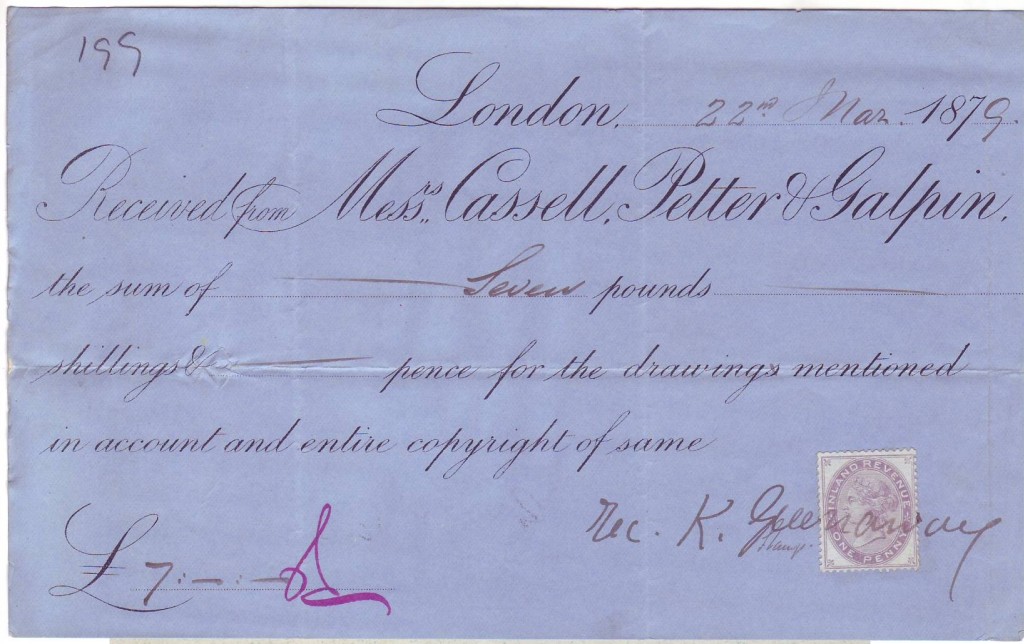 199
London, 22nd Mar. 1879.
Received from Messrs. Cassell, Petter & Galpin,
the sum of Seven pounds
shillings & pence for the drawings mentioned
in account and entire copyright of same
Rec. K. Greenaway
Stamp.
INLAND REVENUE
ONE PENNY
£ 7:—:—